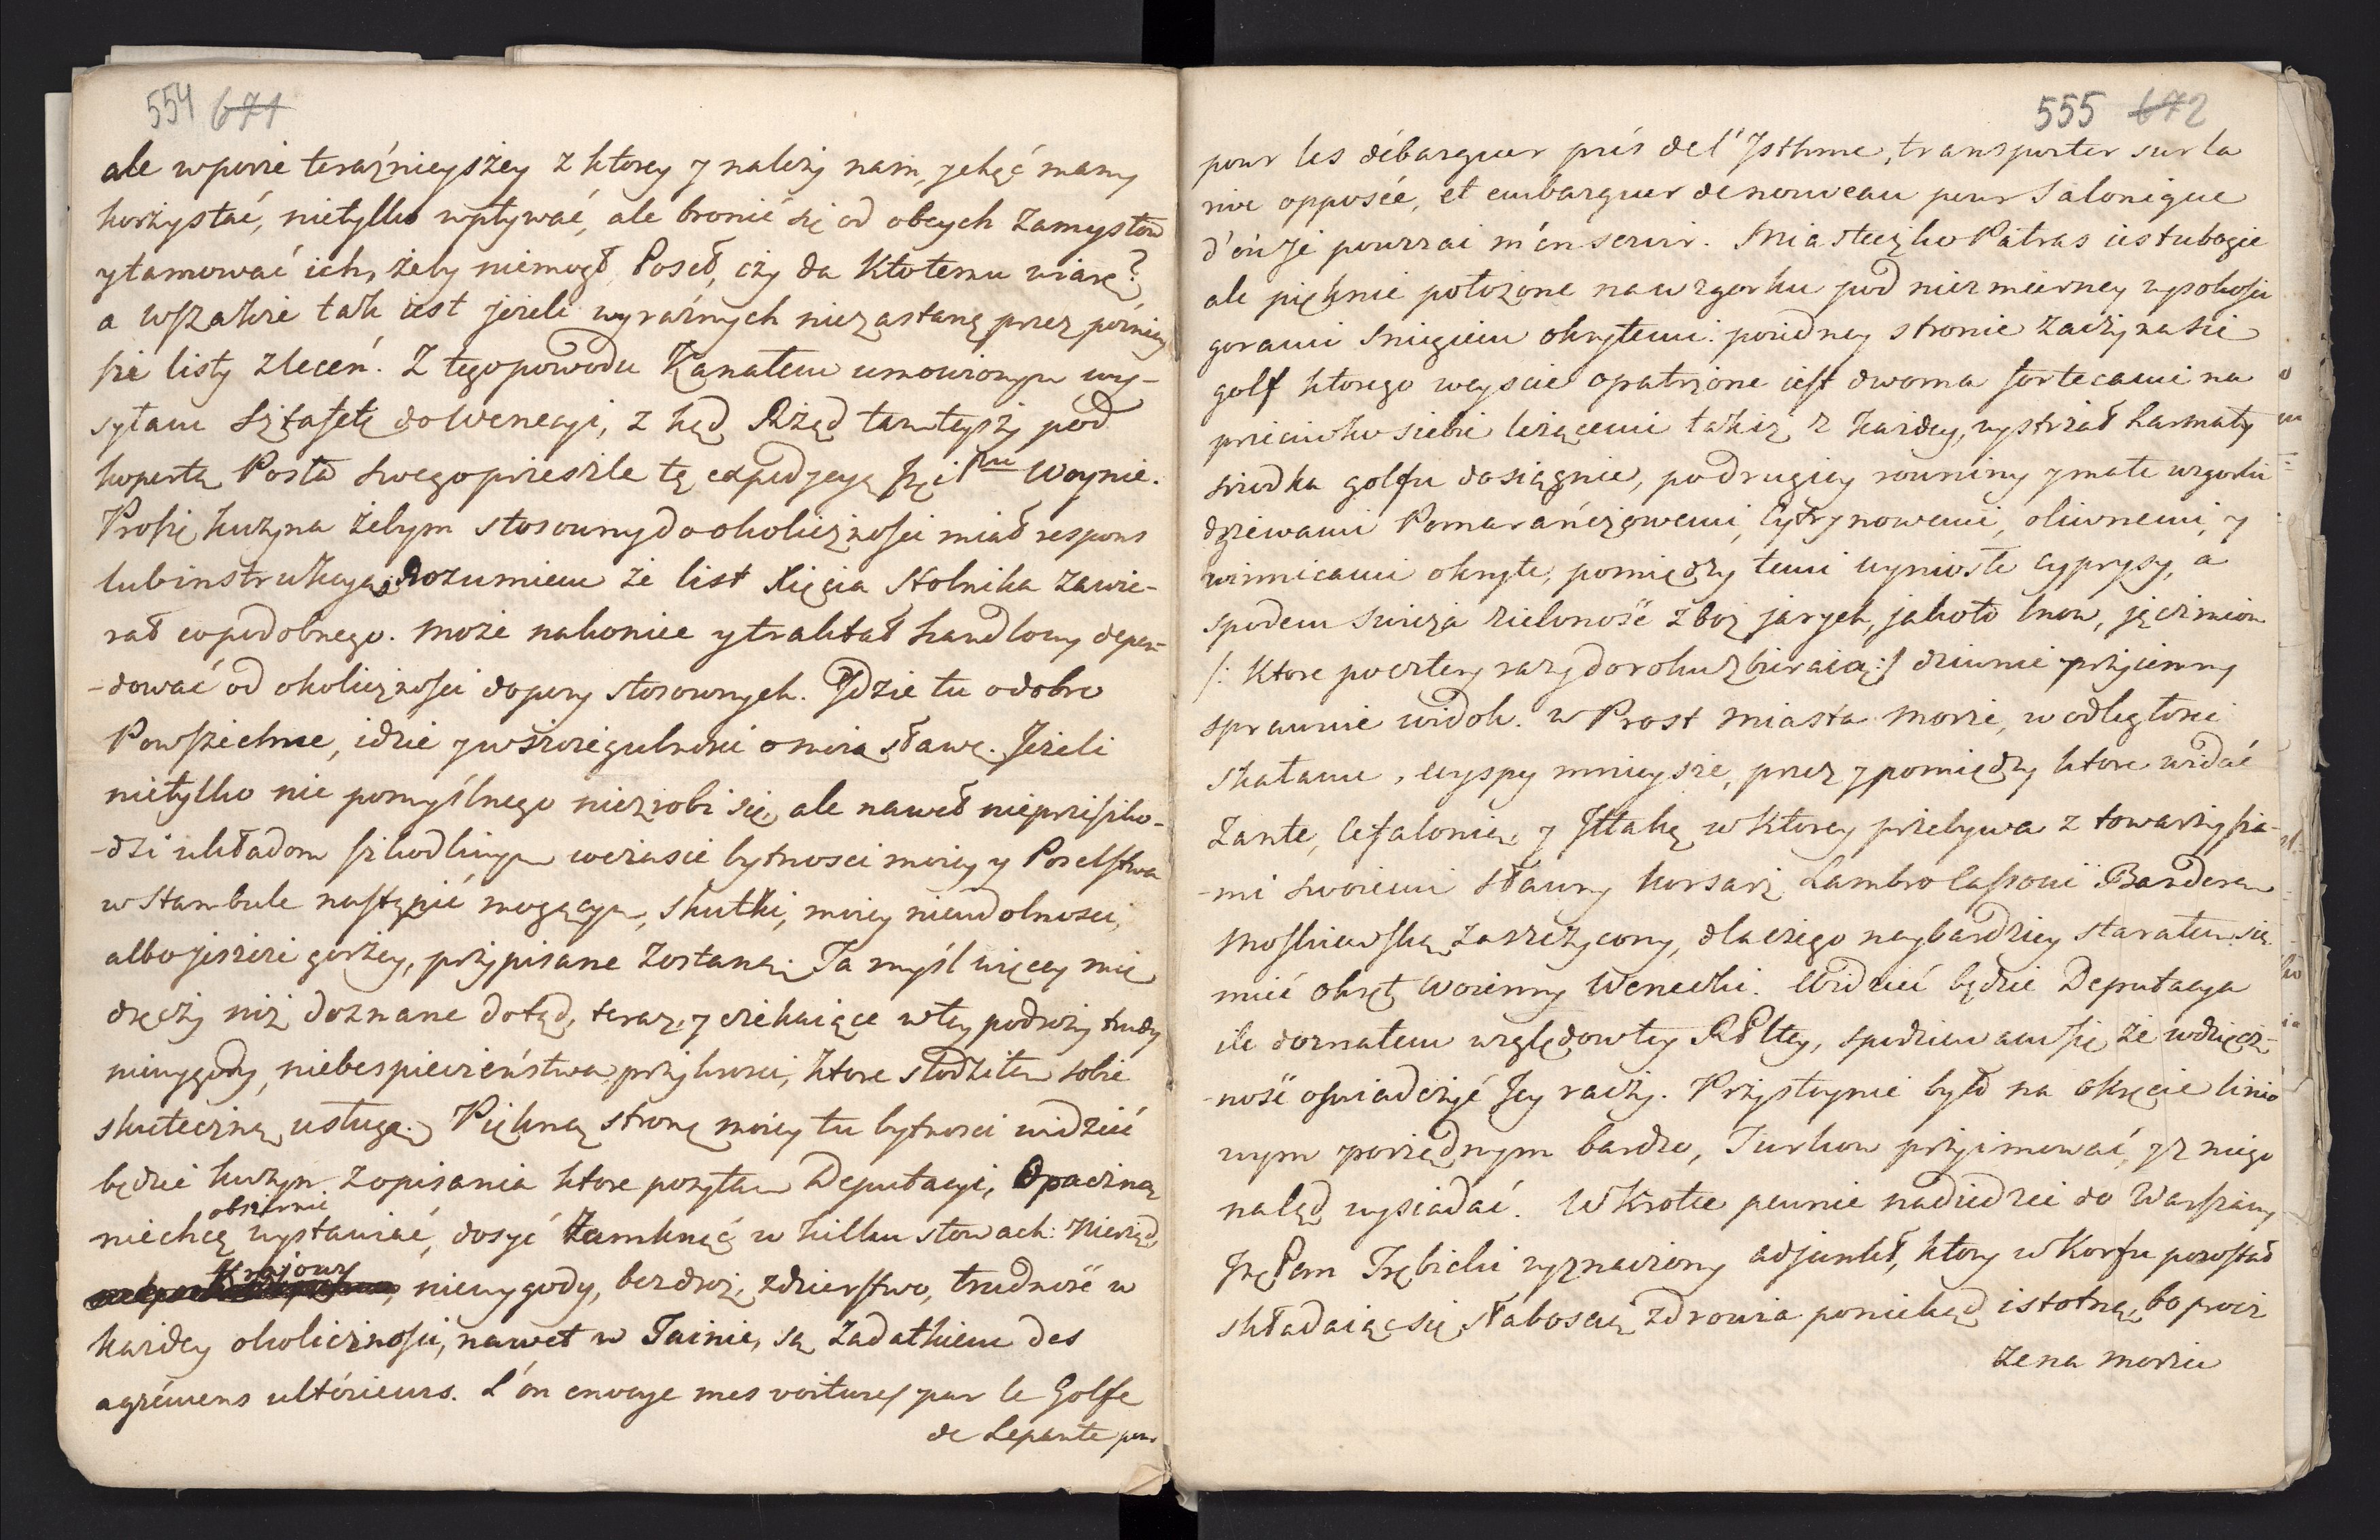 554 671
ale w porze teraźnieyszey z ktorey y należy nam, y chęć mamy
korzystać, nietylko wpływać, ale bronić się od obcych zamysłow
y tamować ich, żeby niemogł Poseł, czy da kto temu wiarę?
a wszakże tak iest jeżeli wyraźnych niezastanę przez poźniey
sze listy zleceń. Z tego powodu Kanałem umowionym wy-
syłam sztafetę do Wenecyi, z kąd Rząd tamteyszy pod
kopertą Posła swego prześzle tę expedycyą Jci Pnu Woynie.
Proszę kuzyna żebym stosowny do okoliczności miał respons
lub instrukcyą. Rozumiem że list Xięcia Stolnika zawie-
rał co podobnego. Może nakoniec y traktat handlowy depen-
-dować od okoliczności do pory stosownych. Jdzie tu o dobro
Powszechne, idzie y w szczegulności o moią sławę. Jeżeli
nietylko nic pomyślnego niezrobi się, ale nawet nieprzeszko-
-dzi układom szkodliwym w czasie bytnosci moiey y Poselstwa
w Stambule nastąpić mogącym, skutki, moiey nieudolnosci,
albo jeszcze gorzey, przypisane zostaną. Ta myśl więcey mię
dręczy niż doznane dotąd, teraz, y czekaiące w tey podroży trudy
niewygody, niebespieczeństwa, przykrosci, ktore słodziłem sobie
skuteczną usługą. Piękną stronę moiey tu bytnosci widzieć
będzie kuzyn z opisania ktore posyłam Deputacyi, Opaczną
obszernie
niechcę wystawiać, dosyć zamknąć w kilku słowach: Nierząd
krajowy
niewygody, bezdroż, zdzierstwo, trudność w
każdey okoliczności, nawet w Tainie, są zadatkiem des
agrémens ultérieurs. L'ón envoye mes voitures par le Golfe
de Lepante pour
555 672
pour les débarquer prés de l'Jsthme, transporter sur la
rive opposée, et embarquer de nouveau pour Salonique
d'ou je pourrai m'én servir. Miasteczko Patras iest ubogie
ale pięknie położone na wzgorku pod niezmierney wysokości
gorami sniegiem okrytemi: po iedney stronie zaczyna się
golf ktorego weyscie opatrzone iest dwoma fortecami na
przeciwko siebie leżącemi tak iż z każdey, wystrzał harmaty
srzodka golfu dosięgnie, po drugiey rowniny y małe wzgorki
drzewami Pomarańczowemi, Cytrynowemi, oliwnemi, y
winnicami okryte, pomiędzy temi wyniosłe cyprysy, a
spodem swieża zieloność zboż jarych, jakoto lnow, jęczmion
/: ktore po cztery razy do roku zbieraią:/ dziwnie przyiemny
sprawuie widok. w Prost miasta morze, w odległości
skałami, wyspy mnieysze, przez y pomiędzy ktore widać
Zante, Cefalonią, y Jttakę w ktorey przebywa z towarzysza-
-mi swoiemi sławny korsarz Lambro Cassoni Banderą
Moskiewską zaszczycony, dla czego naybardziey starałem się
mieć okręt woienny Wenecki. Widzieć będzie Deputacya
ile doznałem względow tey RPltey, spodziewam się że wdzięcz-
-ność oswiadczyć Jey raczy. Przystoynie było na okręcie linio
wym porządnym bardzo, Turkow przyimować, y z niego
na ląd wysiadać. W krotce pewnie nadiedzie do Warszawy
Jmć Pan Trębicki wyznaczony adjunkt, ktory w Korfu pozostał
składaiąc się słabością zdrowia poniekąd istotną, bo procz
że na morzu